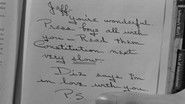 Jeff,
you're wonderful
Press boys all with
you - Read them
Constitution next
very slow.
Diz says I'm
in love with you
P.S